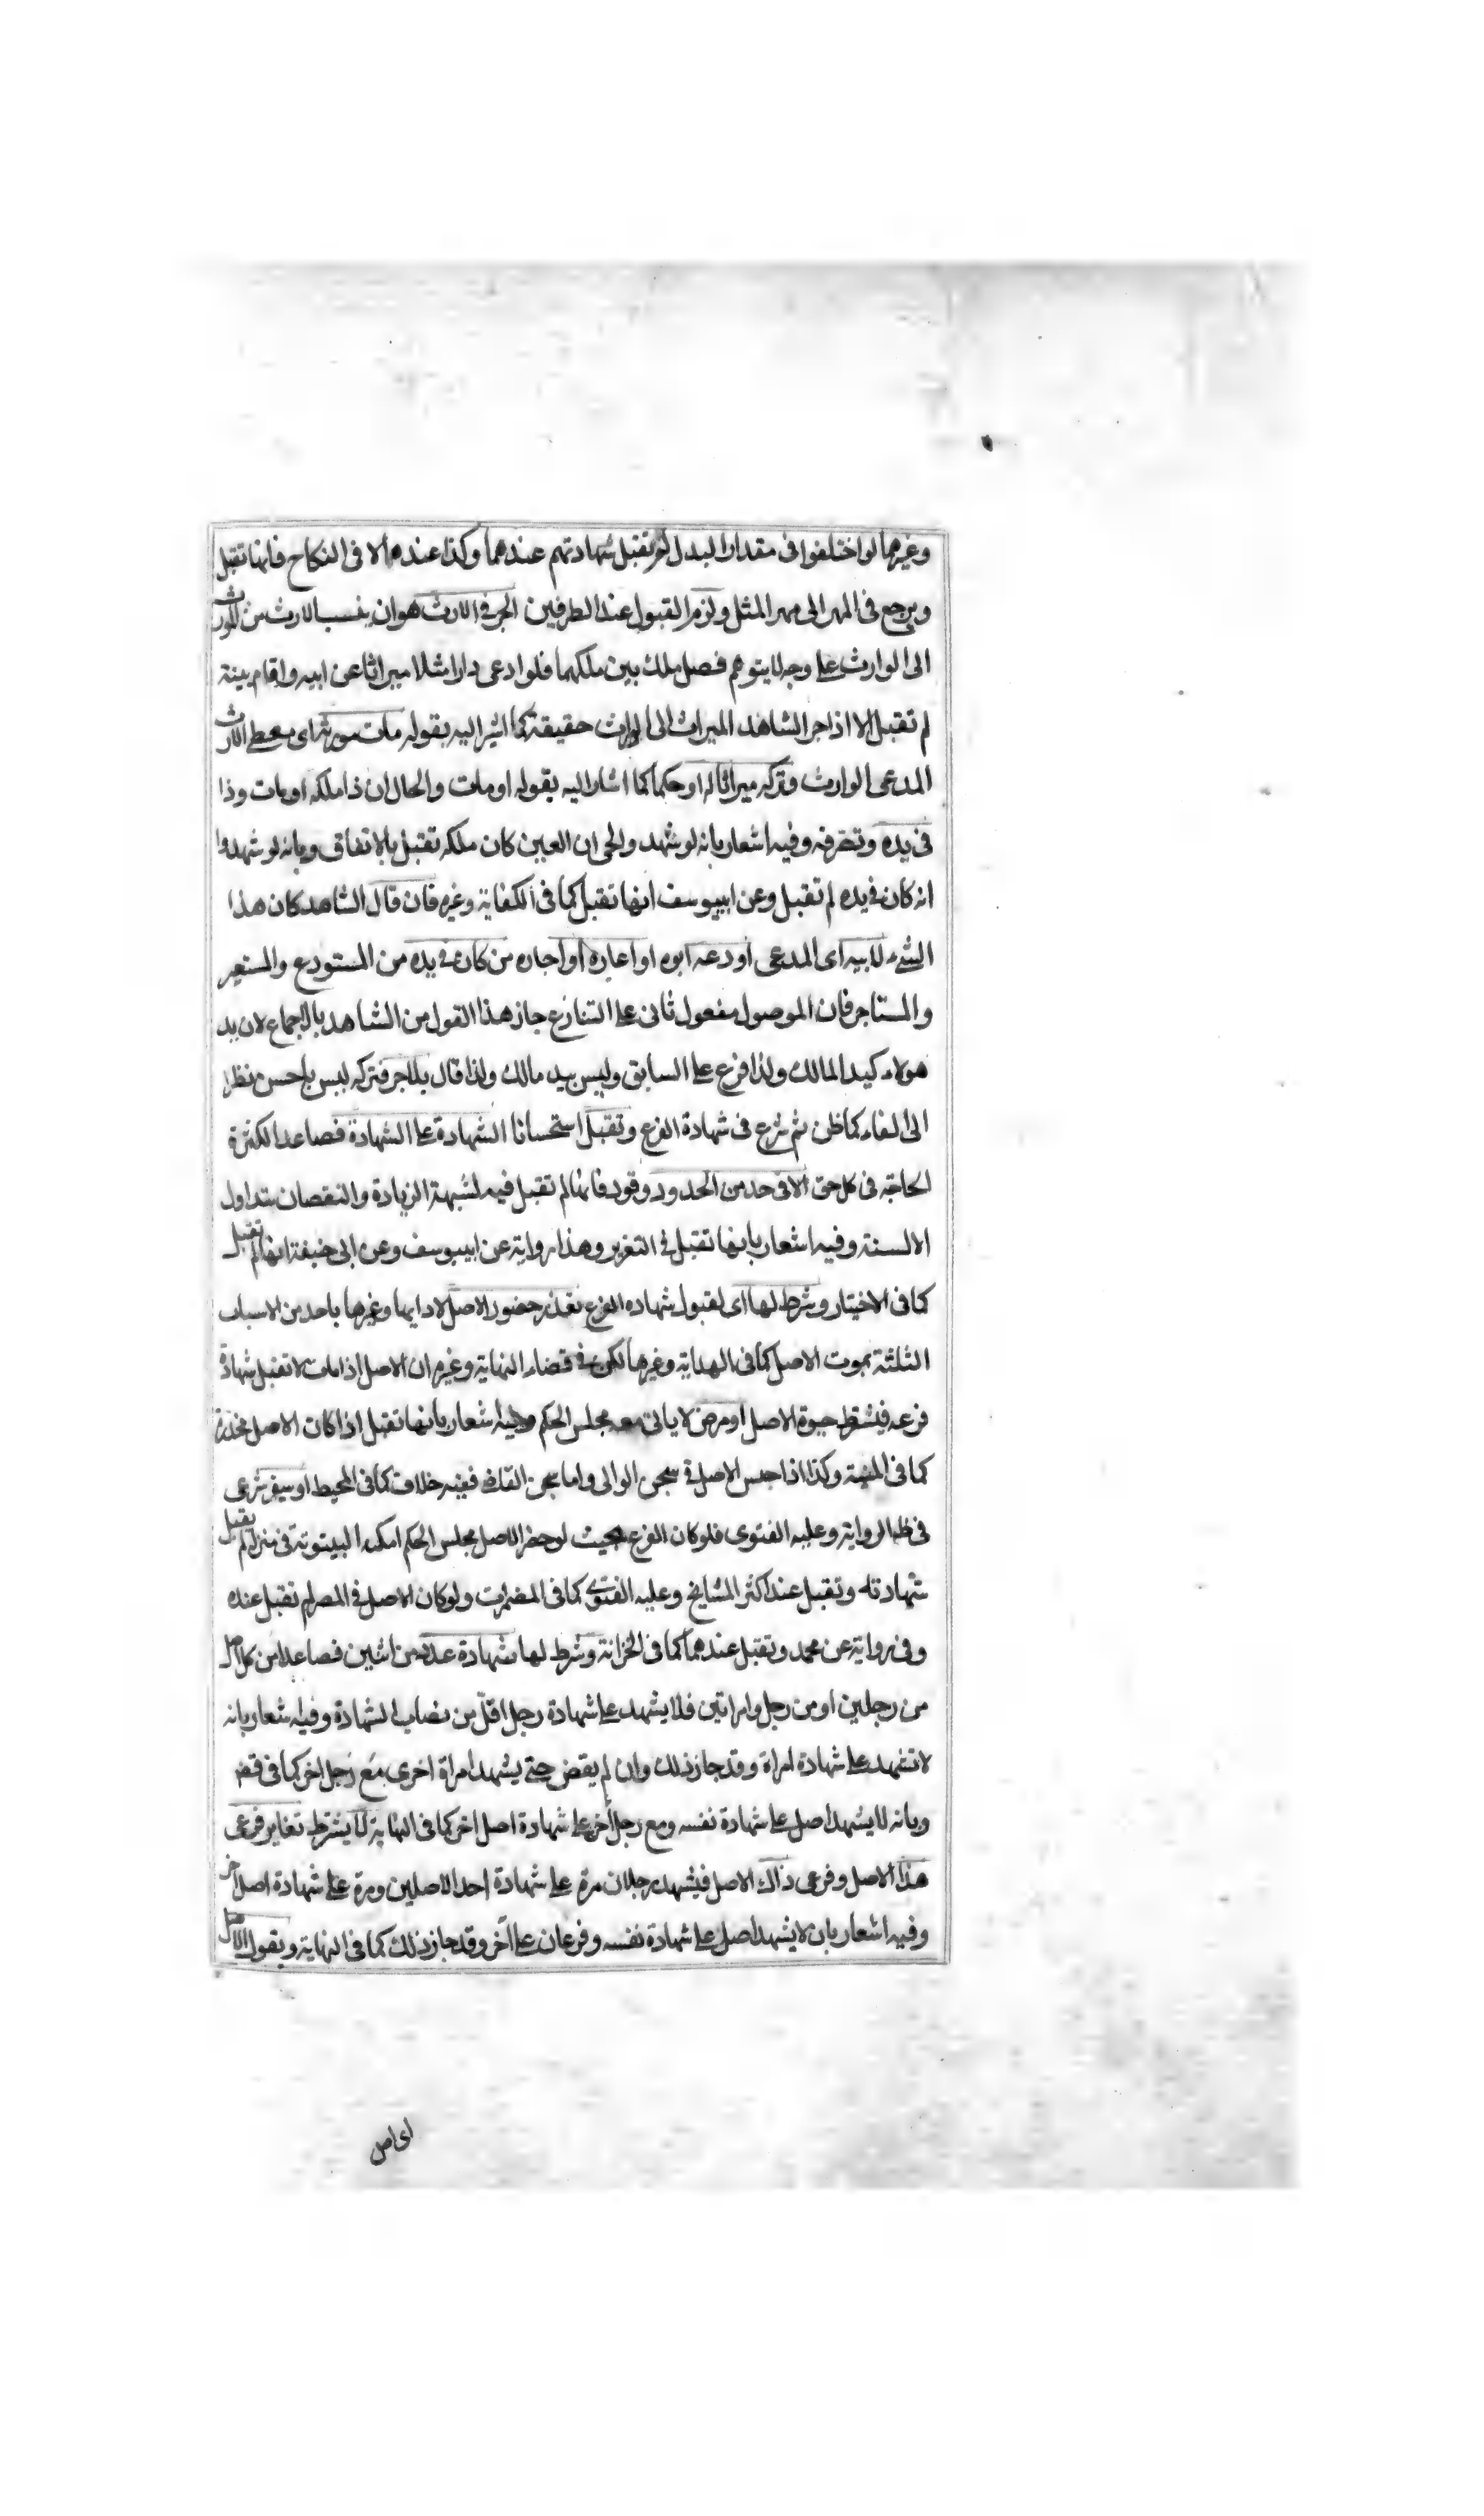 وغيرها لو اختلفوا فى مقدار البدل لم تقبل شهادتهم عندهما وكذا عنده الا فى النكاح فانها تقبل
ويرجع فى المهر الى مهر المثل ولزم القبول عند الطرفين الجر فى الارث هو ان ينسب الارث من المورث
الى الوارث على وجه لا يتوهم فصل ملك بين ملكهما فلو ادعى دارا مثلا ميراثا عن ابيه واقام بينة
لم تقبل الا اذا جر الشاهد الميراث الى الوارث حقيقة كما اشير اليه بقوله مات مورثه اى معطى الارث
المدعى الوارث وتركه ميراثا له او حكما كما اشار اليه بقوله او مات والحال ان ذا ملكه او مات وذا
فى يده وتصرفه وفيه اشعار بانه لو شهد والحى ان العين كان ملكه تقبل بالاتفاق وبانه لو شهدوا
انه كان فى يده لم تقبل وعن ابييوسف انها تقبل كما فى الكفاية وغيره فان قال الشاهد كان هذا
الشىء لابيه اى المدعى اودعه ابوه او اعاره او اجاره من كان فى يده من المستودع والمستعير
والمستاجر فان الموصول مفعول ثانى على التنازع جاز هذا القول من الشاهد بالاجماع لان يد
هولاء كيد المالك ولذا فرع على السابق وليس بيد مالك ولذا قال بلا جر فتركه ليس باحسن نظرا
الى الفاء كما ظن ثم شرع فى شهادة الفرع وتقبل استحسانا الشهادة على الشهادة فصاعدا لكثرة
الحاجة فى كل حق الا فى حد من الحدود وقود فانها لم تقبل فيه لشبهة الزيادة والنقصان بتداول
الالسنة وفيه اشعار بانها تقبل فى التعزير وهذا رواية عن ابييوسف وعن ابى حنيفة انها لم تقبل
كما فى الاختيار وشرط لها اى لقبول شهادة الفرع تعذر حضور الاصل لادايها وغيرها باحد من الاسباب
الثلثة بموت الاصل كما فى الهداية وغيرها لكن فى قضاء النهاية وغيره ان الاصل اذا مات لا تقبل شهادة
فرعه فيشترط حيوة الاصل او مرض لا ياتى معه مجلس الحكم وفيه اشعار بانها تقبل اذا كان الاصل مخدرة
كما فى المنية وكذا اذا حبس الاصل فى سجن الوالى واما سجن القاضى ففيه خلاف كما فى المحيط او سفر شرعى
فى ظاهر الرواية وعليه الفتوى فلو كان الفرع بحيث لو حضر الاصل مجلس الحكم امكنه البيتوتة فى منزله لم يقبل
شهادته وتقبل عند اكثر المشايخ وعليه الفتوى كما فى المضمرات ولو كان الاصل فى المصر لم تقبل عنده
وفى رواية عن محمد وتقبل عندهما كما فى الخزانة وشرط لها شهادة عدد من اثنين فصاعدا من كل اصل
من رجلين او من رجل وامراتين فلا يشهد على شهادة رجل اقل من نصاب الشهادة وفيه اشعار بانه
لا تشهد على شهادة امراة وقد جاز ذلك وان لم يقض حتى يشهد امراة اخرى مع رجل اخر كما فى
وبانه لا يشهد اصل على شهادة نفسه ومع رجل اخر على شهادة اصل اخر كما فى النهاية لا يشترط تغاير فرعى
هذا الاصل وفرعى ذاك الاصل فيشهد رجلان مرة على شهادة احد الاصلين ومرة على شهادة اصل اخر
وفيه اشعار بان لا يشهد اصل على شهادة نفسه وفرعان على آخر وقد جاز ذلك كما فى النهاية ويقول الاصل
اى اصل